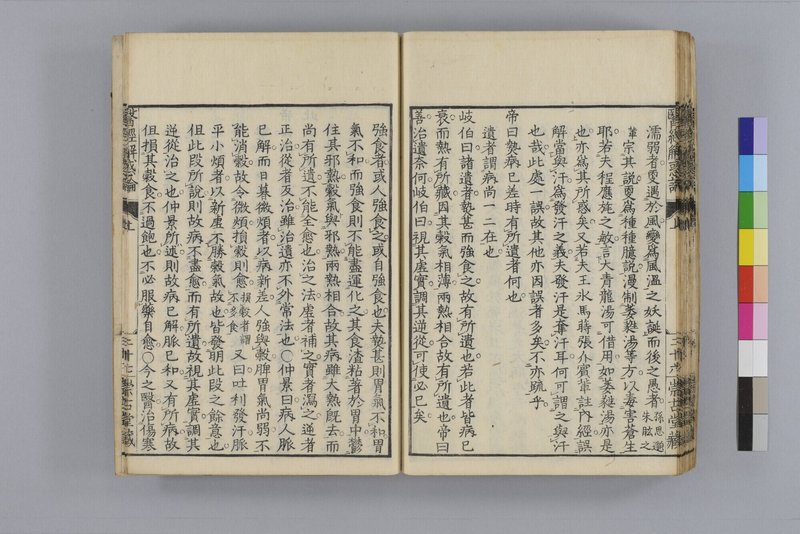 濡弱者更遇於風變爲風溫之妖誕而後之愚者孫思邈朱肱之
輩宗其說更爲種種臆說漫制萎蕤湯等方以毒害蒼生
耶若夫程應旄之敏言大青龍湯可借用如萎蕤湯亦是
也亦爲其所惑矣又若夫王氷馬蒔張介賓輩註內經誤
解當與汗爲發汗之義夫發汗是藥汗耳何可謂之與汗
也哉此處一誤故其他亦因誤者多矣不亦疏乎
帝曰熱病已差時有所遺者何也
遺者謂病尚一二在也
岐伯曰諸遺者熱甚而強食之故有所遺也若此者皆病已
衰而熱有所藏因其穀氣相薄兩熱相合故有所遺也帝曰
善治遺奈何岐伯曰視其虛實調其逆從可使必已矣
強食者或人強食之或自強食也夫熱甚則胃氣不和胃
氣不和而強食則不能盡運化之其食渣粘著於胃中鬱
住其邪熱穀氣與邪熱兩熱相合故其病雖大熱旣去而
尚有所遺不能全愈也治之法虛者補之實者瀉之逆者
正治從者反治雖治遺亦不外常法也○仲景曰病人脈
已解而日暮微煩者以病新差人強與穀脾胃氣尚弱不
能消穀故令微煩損穀則愈損穀者謂不多食又曰吐利發汗脈
平小煩者以新虛不勝穀氣故也皆發明此段之餘意也
但此段所說則故病不盡愈而有所遺故視其虛實調其
逆從治之也仲景所述則故病已解脈已和又有所病故
但損其穀食不過飽也不必服藥自愈○今之醫治傷寒
醫經解惑論